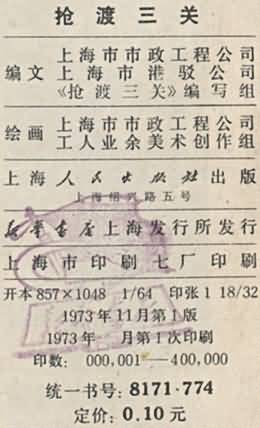 抢渡三关
编文
上海市市政工程公司
上海市港驳公司
《抢渡三关》编写组
绘画
上海市市政工程公司
工人业余美术创作组
上海人民出版社出版
上海绍兴路五号
新华书店上海发行所发行
上海市印刷七厂印刷
开本 857×1048 1/64 印张 1 18/32
1973年11月第1版
1973年 月第1次印刷
印数：000,001—400,000
统一书号：8171·774
定价：0.10元